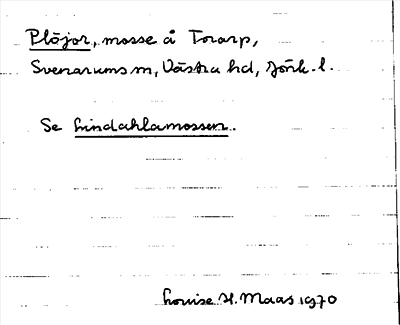 Plöjor, mosse å Torarp,
Svenarums sn, Västra hd, Jönk. l.
Se Lindahlamossen.
Louise H. Maas 1970